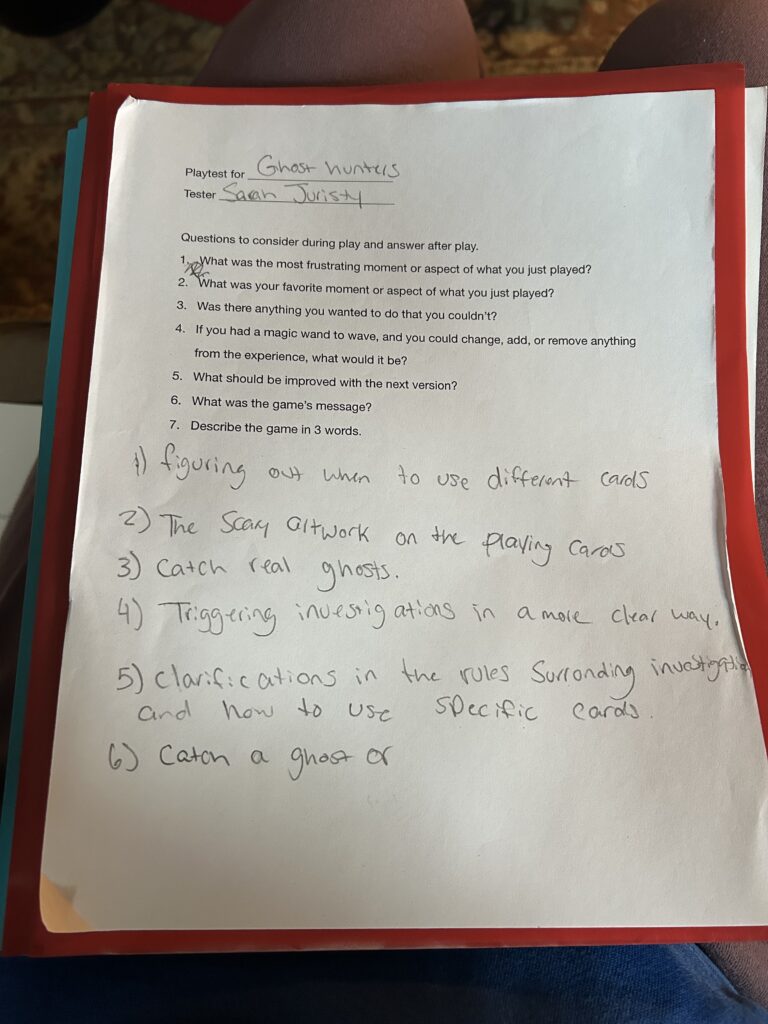 Playtest for Ghost hunters
Tester Sarah Juristy
Questions to consider during play and answer after play.
1. What was the most frustrating moment or aspect of what you just played?
2. What was your favorite moment or aspect of what you just played?
3. Was there anything you wanted to do that you couldn't?
4. If you had a magic wand to wave, and you could change, add, or remove anything
from the experience, what would it be?
5. What should be improved with the next version?
6. What was the game's message?
7. Describe the game in 3 words.
1) figuring out when to use different cards
2) The Scary artwork on the playing cards
3) Catch real ghosts.
4) Triggering investigations in a more clear way.
5) Clarifications in the rules Surronding investigation
and how to use specific cards.
6) Catch a ghost or